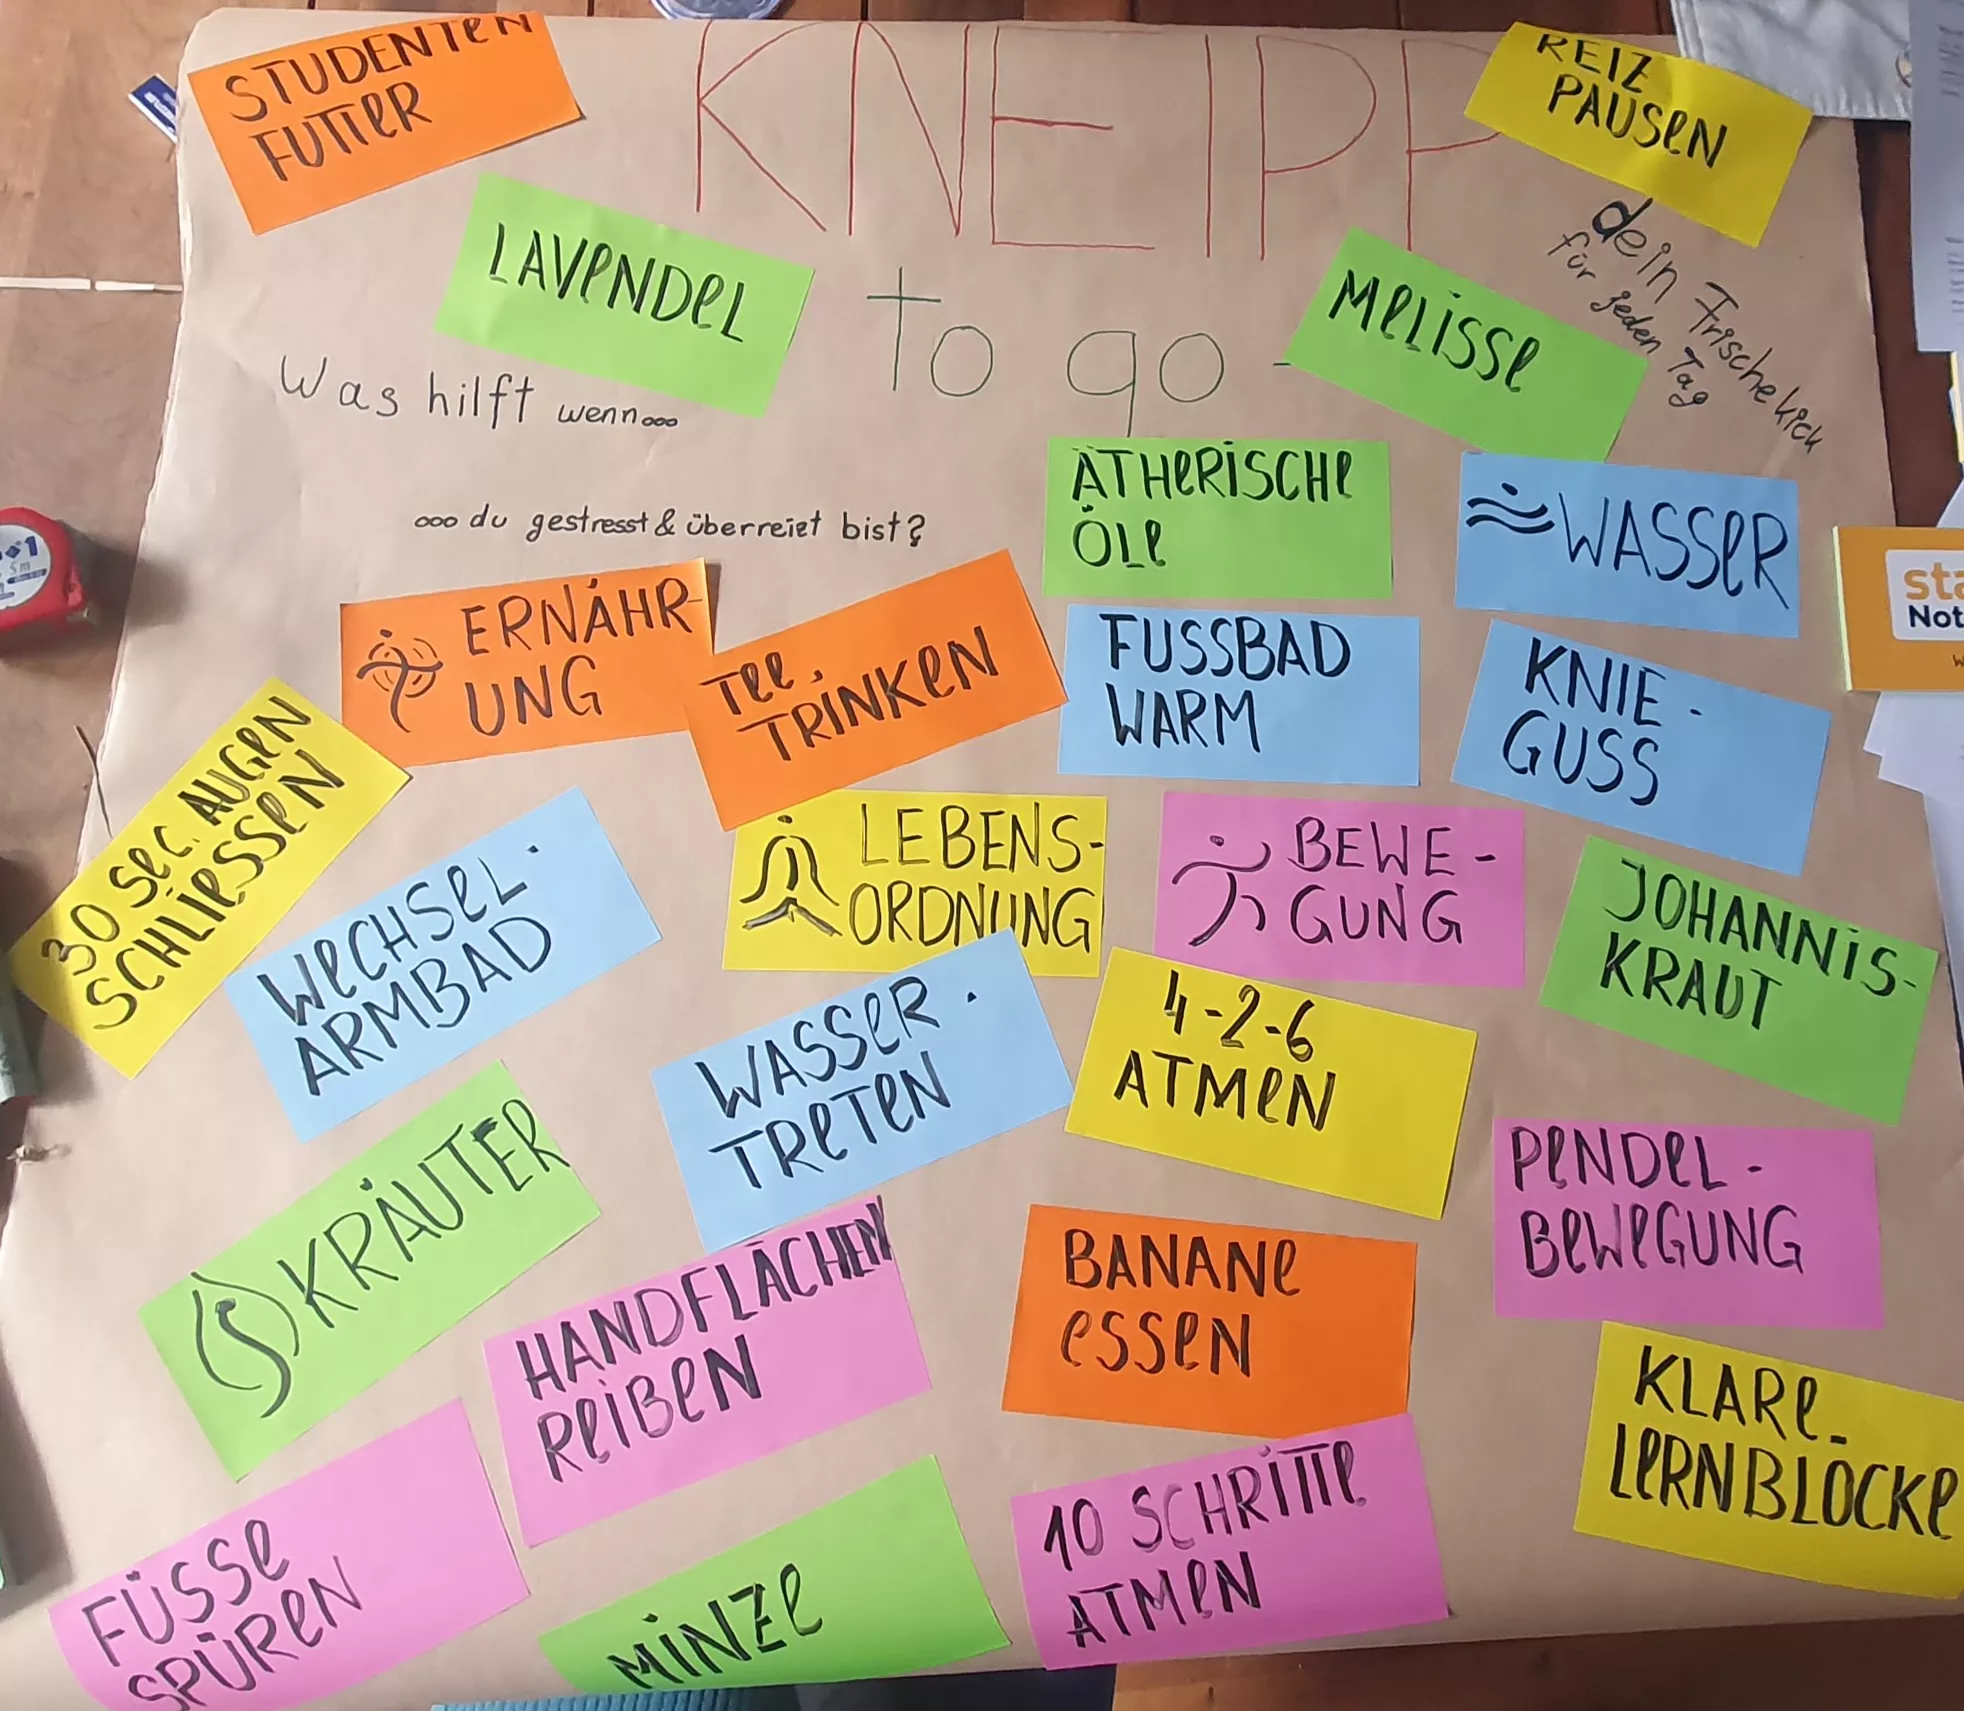 STUDENTEN
FUTTER
KNEIPP
REIZ
PAUSEN
LAVENDEL
to go -
MELISSE
dein Frischekick
für jeden Tag
Was hilft wenn...
... du gestresst & überreizt bist?
ÄTHERISCHE
ÖLE
WASSER
ERNÄHR-
UNG
TEE.
TRINKEN
FUSSBAD
WARM
KNIE-
GUSS
30 SEC. AUGEN
SCHLIESSEN
WECHSEL-
ARMBAD
LEBENS-
ORDNUNG
BEWE-
GUNG
JOHANNIS-
KRAUT
WASSER-
TRETEN
4-2-6
ATMEN
KRÄUTER
PENDEL-
BEWEGUNG
HANDFLÄCHEN
REIBEN
BANANE
ESSEN
KLARE
LERNBLÖCKE
FÜSSE
SPÜREN
MINZE
10 SCHRITTE
ATMEN
5m
Not